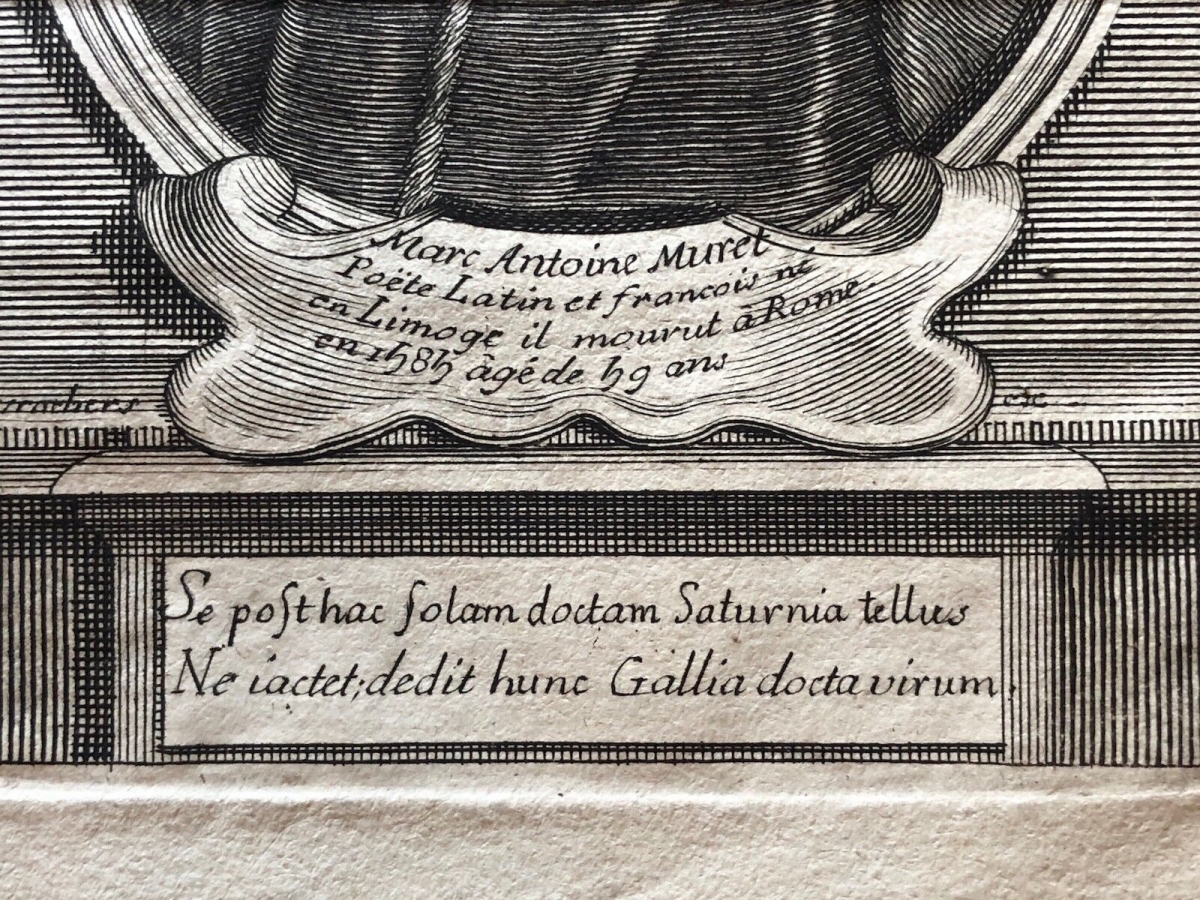 Marc Antoine Muret
Poëte Latin et francois né
en Limoge il mourut à Rome.
en 1585 âgé de 59 ans
etc
Se poſthac ſolam doctam Saturnia tellus
Ne iactet; dedit hunc Gallia docta virum.